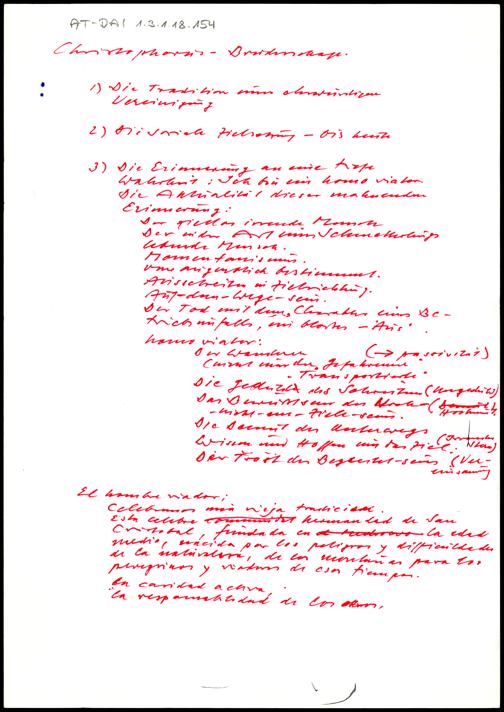 AT-DAI 1.3.1 18.154
Christophorus - Bruderschaft.
1) Die Tradition einer ehrwürdigen
Vereinigung
2) Die soziale Zielsetzung - bis heute
3) Die Erinnerung an eine tiefe
Wahrheit: Ich bin ein homo viator
Die Aktualität dieser mahnenden
Erinnerung:
Der ziellos irrende Mensch
Der in der Art eines Schmetterlings
lebende Mensch.
Momentanismus.
vom Augenblick bestimmt.
Ausschreiten in Zielrichtung.
Auf-dem-Wege-sein.
Der Tod mit dem "Charakter eines Be-
triebsunfalls, ein blosses - Aus".
homo viator:
Der Wanderer (→ passivität)
(nicht nur der "Gefahrene"
- Transportierte"
Die Geduld des Schreitens (Ungeduld)
Das Bewusstsein des
-nicht-am-Ziele-seins.
Die Demut des Unterwegs
Wissen und Hoffen um das Ziel.
Der Trost des Begleitet-seins (Ver-
einsamung
El hombre viador;
Celebramos una vieja tradicion.
Esta celebre communidad hermandad de San
Cristobal, fundada en la edad
media, nacida por los peligros y difficuldades
de la naturaleza, de las montañas para los
peregrinos y viadores de esos tiempos.
La caridad activa.
la responsabilidad de los otros.